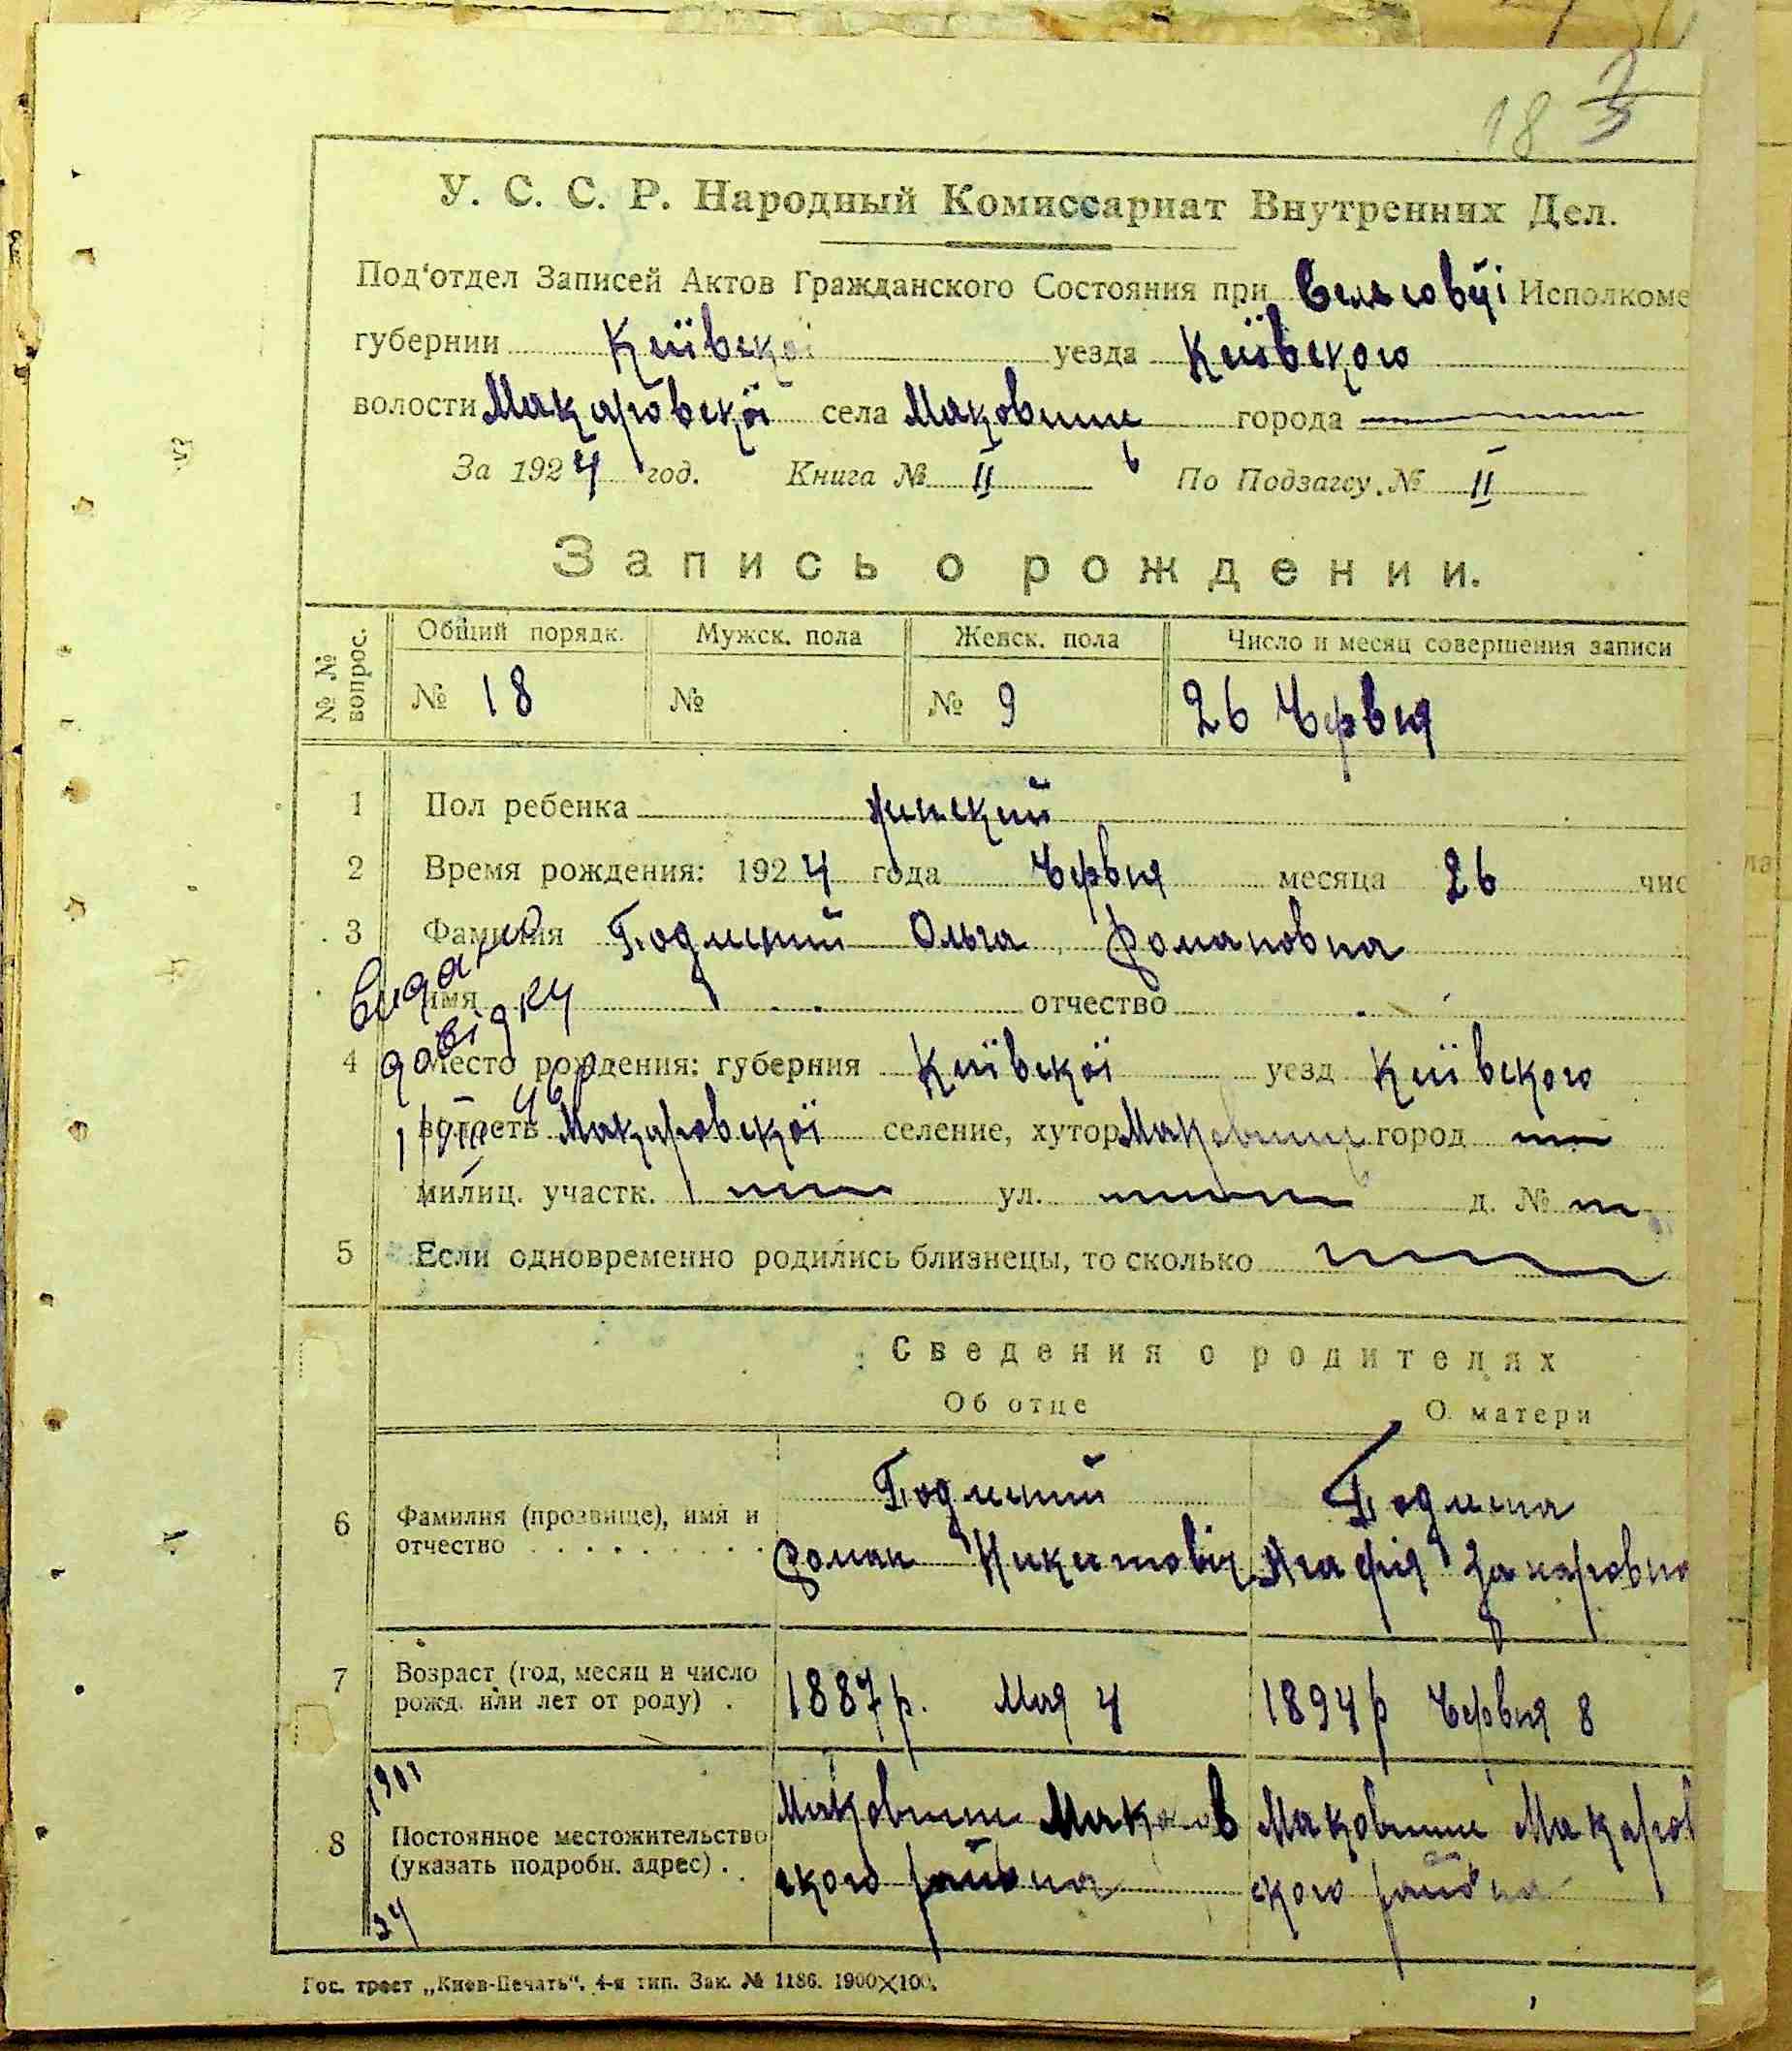 18 3
У. С. С. Р. Народный Комиссариат Внутренних Дел.
Под‘отдел Записей Актов Гражданского Состояния при Исполкоме
губернии Київскої уезда Київского
волости Макаровскої села Маковище города
За 1924 год. Книга № II По Подзагсу № II
Запись о рождении.
№ № вопрос. Общий порядк. Мужск. пола Женск. пола Число и месяц совершения записи
№ 18 № № 9 26 Червня
1 Пол ребенка жинский
2 Время рождения: 1924 года Червня месяца 26 чис
3 Фамилия Ольга Романовна
имя отчество
Видано
довідку
4 Место рождения: губерния Київскої уезд Київского
волость Макаровскої селение, хутор Маковище город
милиц. участк. ул. д. №
5 Если одновременно родились близнецы, то сколько
Сведения о родителях
Об отце О матери
6 Фамилия (прозвище), имя и
отчество Роман Никитовіч Агафія Захаровна
7 Возраст (год, месяц и число
рожд. или лет от роду) . 1887 р. Мая 4 1894 р Червня 8
8 Постоянное местожительство
(указать подробн. адрес) . Маковище Макаров Маковище Макаров
ского района ского района
Гос. трест „Киев-Печать“. 4-я тип. Зак. № 1186. 1900×100.